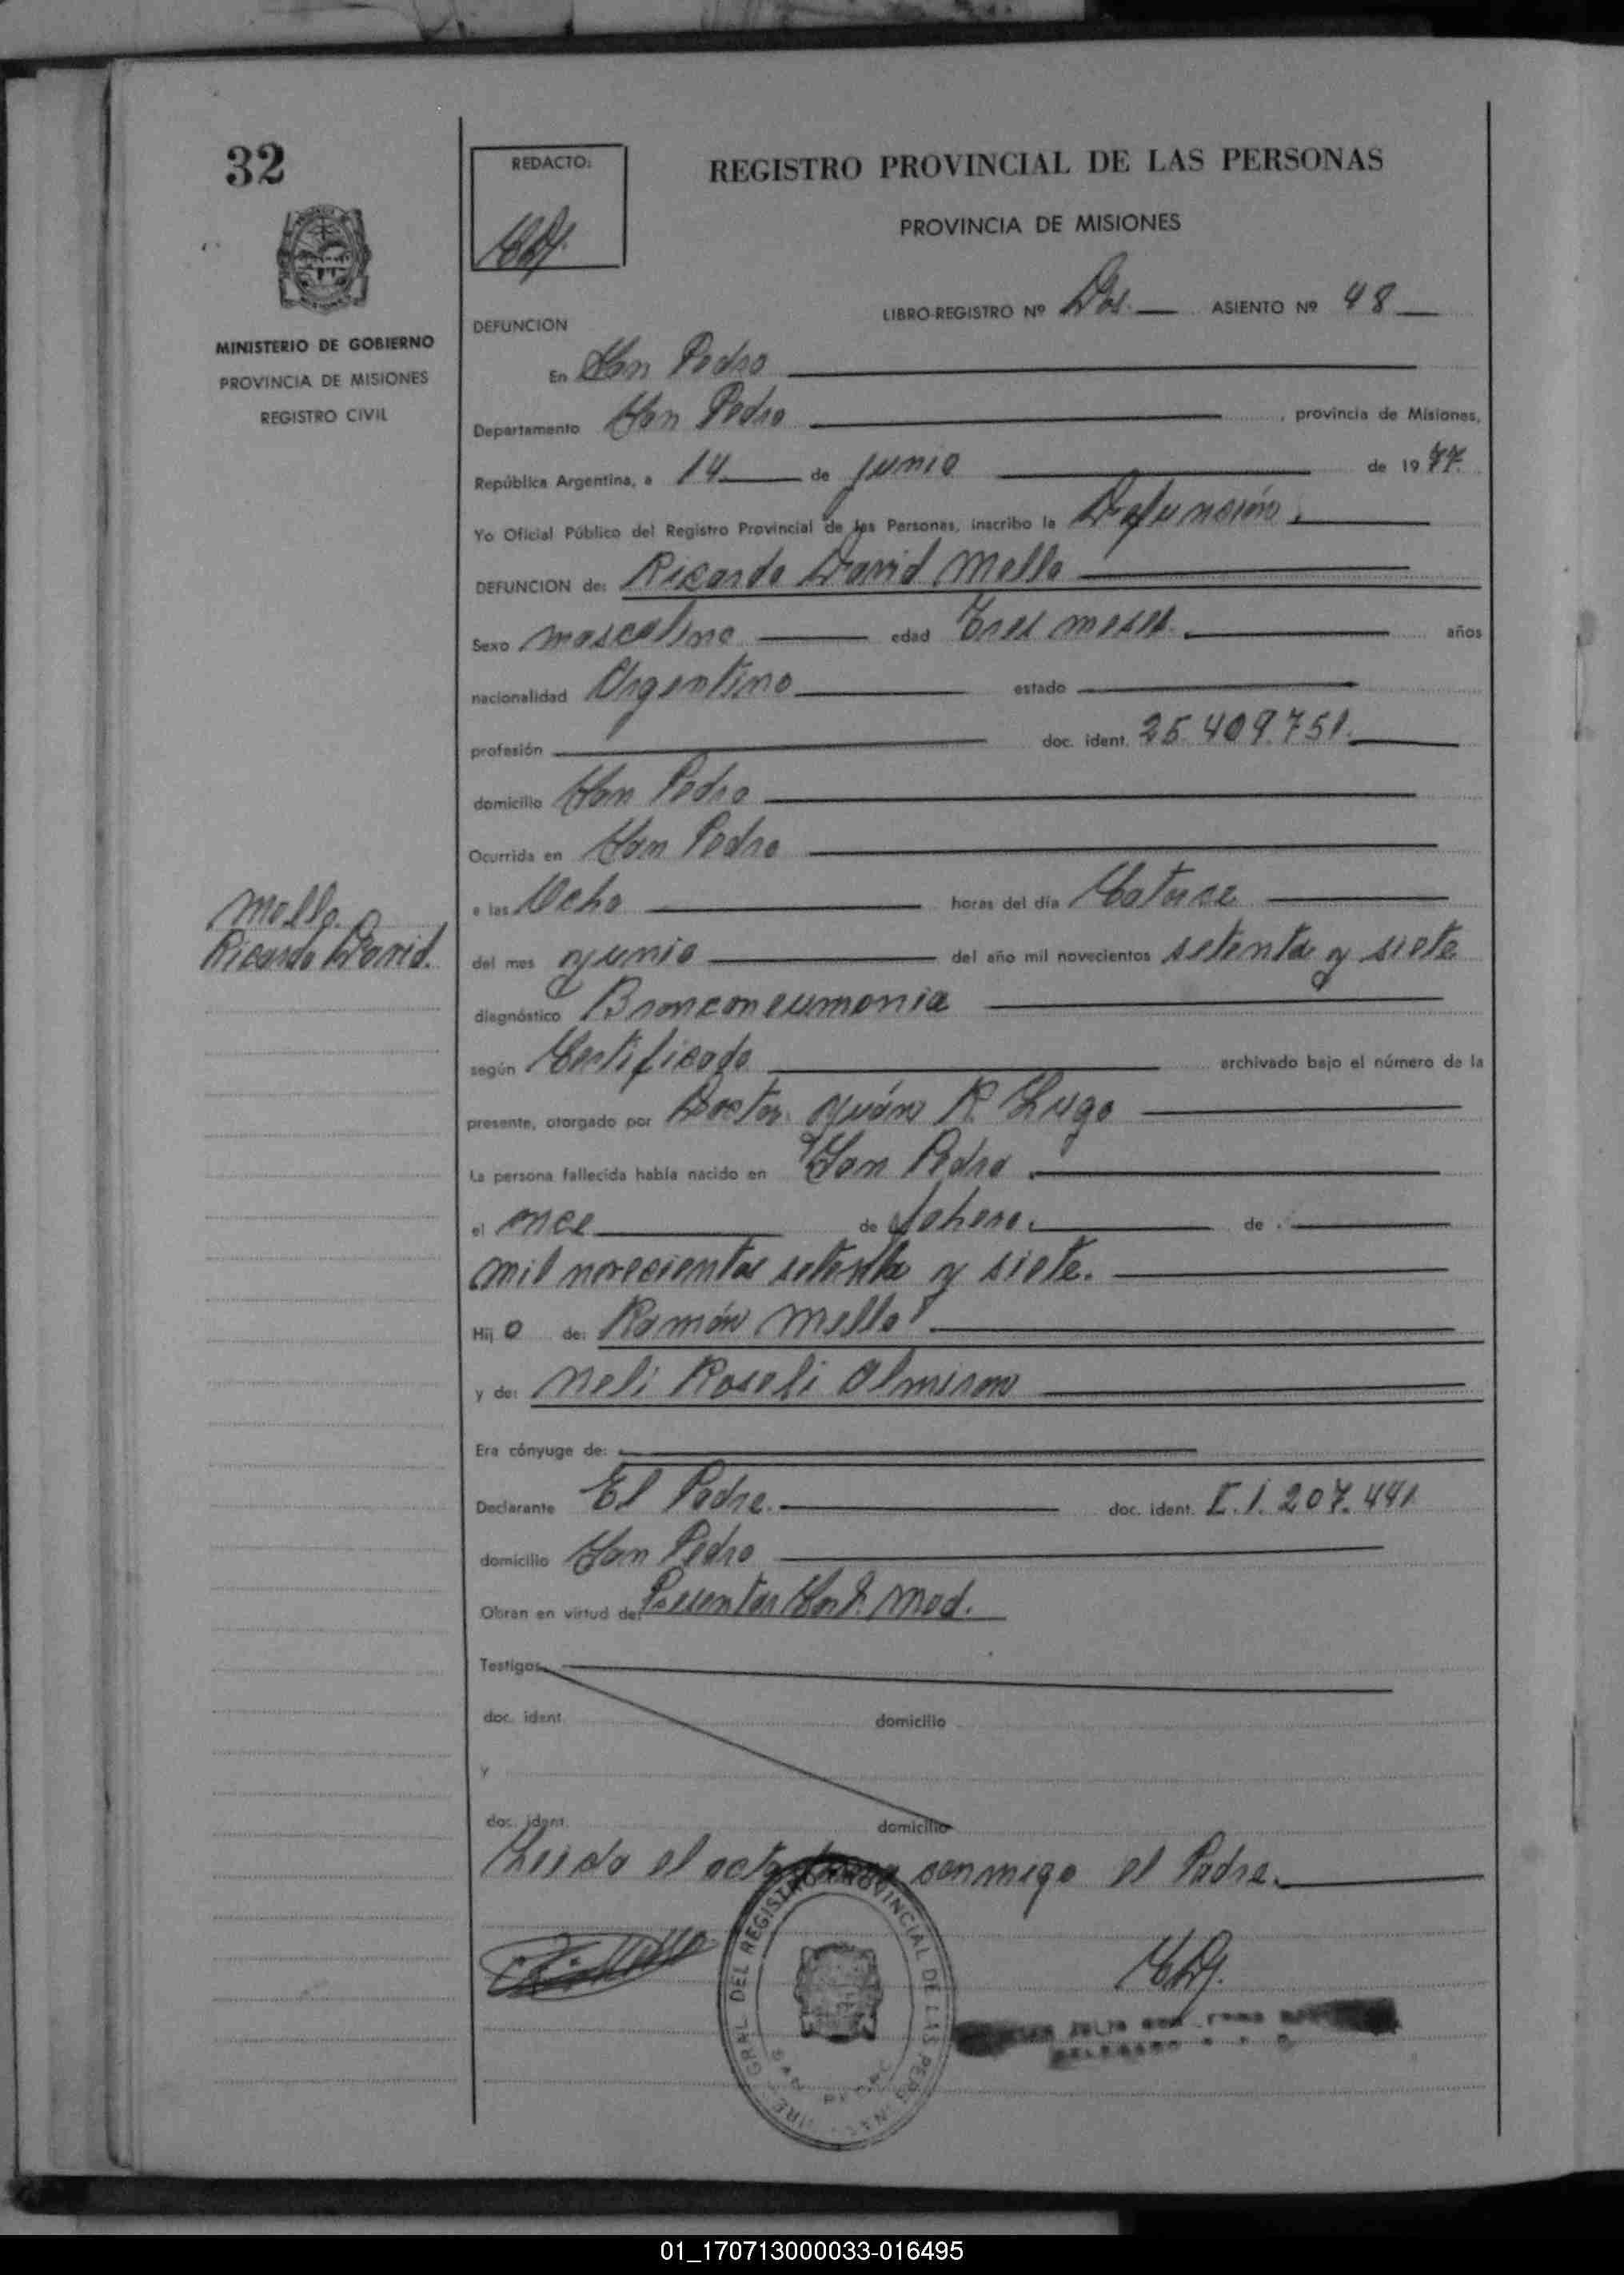 32
REDACTO:
REGISTRO PROVINCIAL DE LAS PERSONAS
PROVINCIA DE MISIONES
MINISTERIO DE GOBIERNO
PROVINCIA DE MISIONES
REGISTRO CIVIL
LIBRO-REGISTRO Nº Dos. ASIENTO Nº 48
DEFUNCION
En San Pedro
Departamento San Pedro, provincia de Misiones,
República Argentina, a 14 de junio de 1977.
Yo Oficial Público del Registro Provincial de las Personas, inscribo la Defunción.
DEFUNCION de: Ricardo David Mello
Sexo masculino edad Tres meses. años
nacionalidad Argentino estado
profesión doc. ident. 25.409.751.
domicilio San Pedro
Ocurrida en San Pedro
a las Ocho horas del día Catorce
del mes junio del año mil novecientos setenta y siete
Mello.
Ricardo David.
diagnóstico Bronconeumonia
según Certificado archivado bajo el número de la
presente, otorgado por Doctor Juán R. Lugo
La persona fallecida había nacido en San Pedro.
el once de febrero. de
mil novecientos setenta y siete.
Hijo de: Ramón Mello
y de: Neli Roseli Almiron
Era cónyuge de:
Declarante El Padre. doc. ident. C.I. 207.441
domicilio San Pedro
Obran en virtud de: Presentar Cert. Med.
Testigos
doc. ident. domicilio
y
doc. ident. domicilio
Leida el acta firma conmigo el Padre.
GRAL. DEL REGISTRO PROVINCIAL DE LAS PERSONAS
SAN PEDRO
01_170713000033-016495